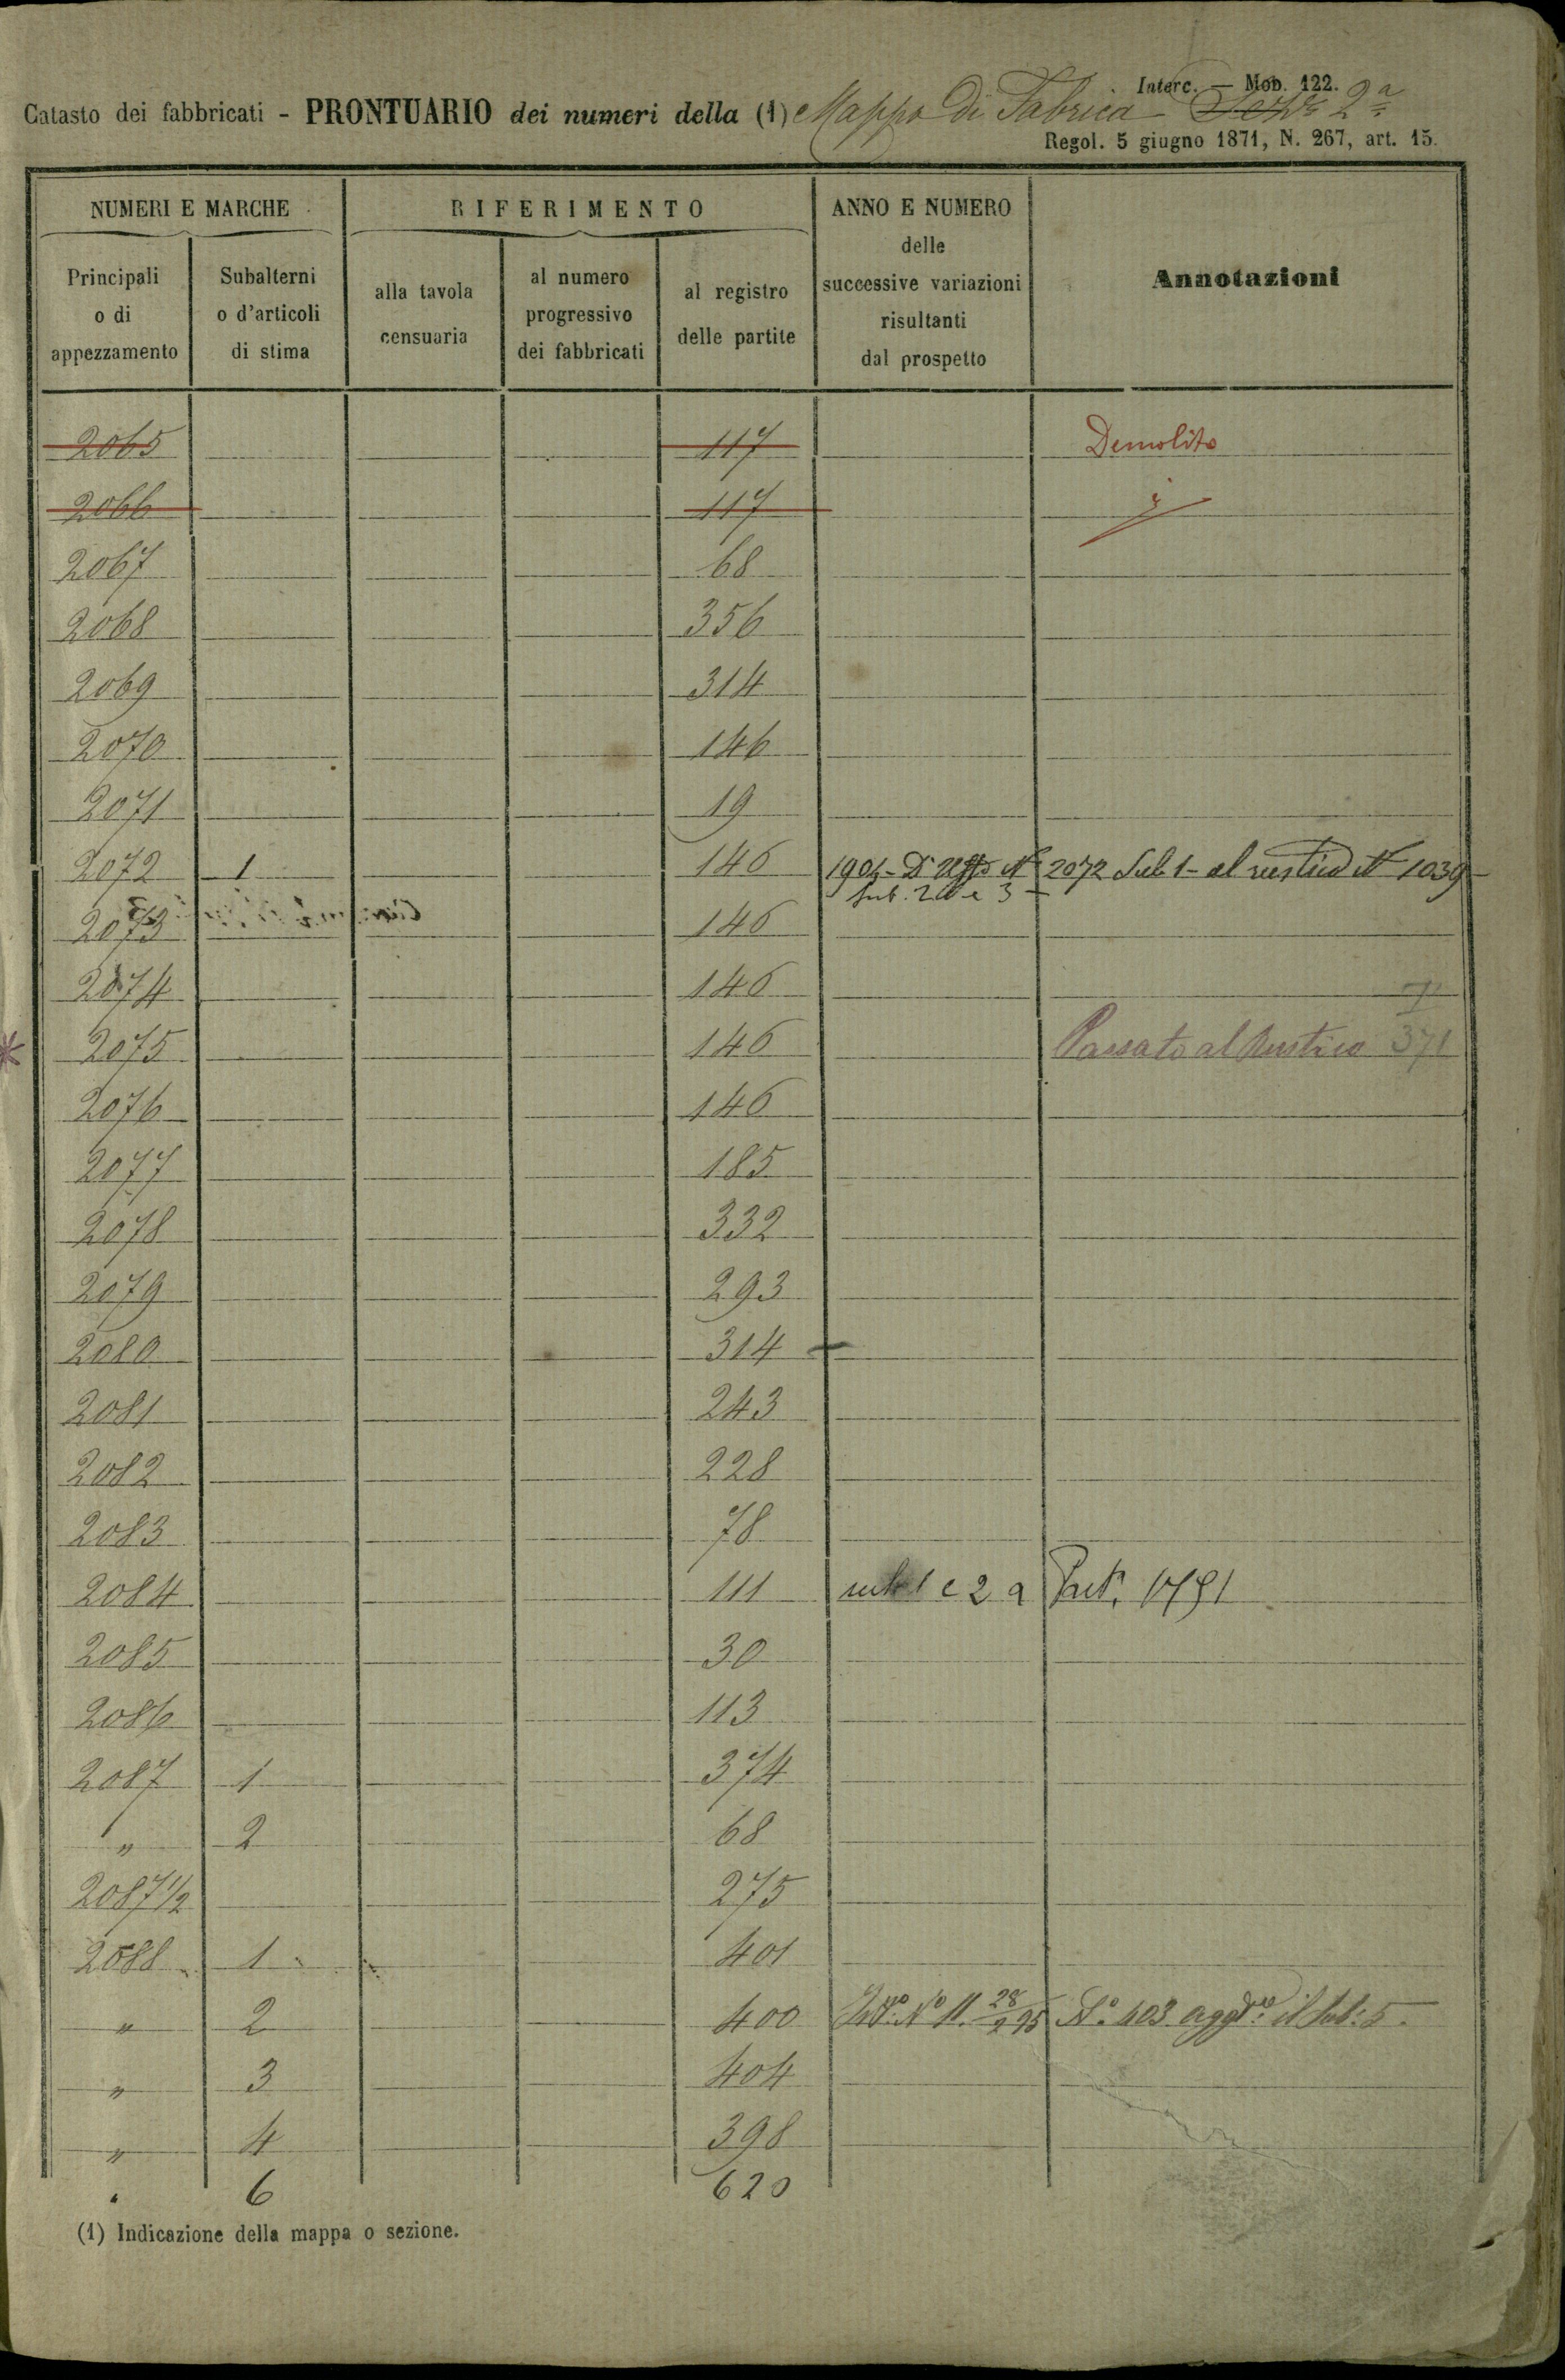 Interc. — Mod. 122.
Catasto dei fabbricati - PRONTUARIO dei numeri della (1) Mappa Di Fabrica 2ª
Regol. 5 giugno 1871, N. 267, art. 15.
NUMERI E MARCHE RIFERIMENTO ANNO E NUMERO delle successive variazioni risultanti dal prospetto Annotazioni
Principali o di appezzamento Subalterni o d'articoli di stima alla tavola censuaria al numero progressivo dei fabbricati al registro delle partite
2065 117 Demolito
2066 117
2067 68
2068 356
2069 314
2070 146
2071 19
2072 1 146 1904 - D'Uffo No 2072 Sub 1 - al rustico No 1039 -
sub. 2 e 3 -
2073 146
2074 146
2075 146 Passato al Rustico 371
2076 146
2077 185
2078 332
2079 293
2080 314
2081 243
2082 228
2083 78
2084 111 sub 1 e 2 a Part. 1791
2085 30
2086 113
2087 1 374
" 2 68
2087 1/2 275
2088 1 401
" 2 400 No 11. 28/2 95 No. 403 il sub: 5.
" 3 404
" 4 398
" 6 620
(1) Indicazione della mappa o sezione.